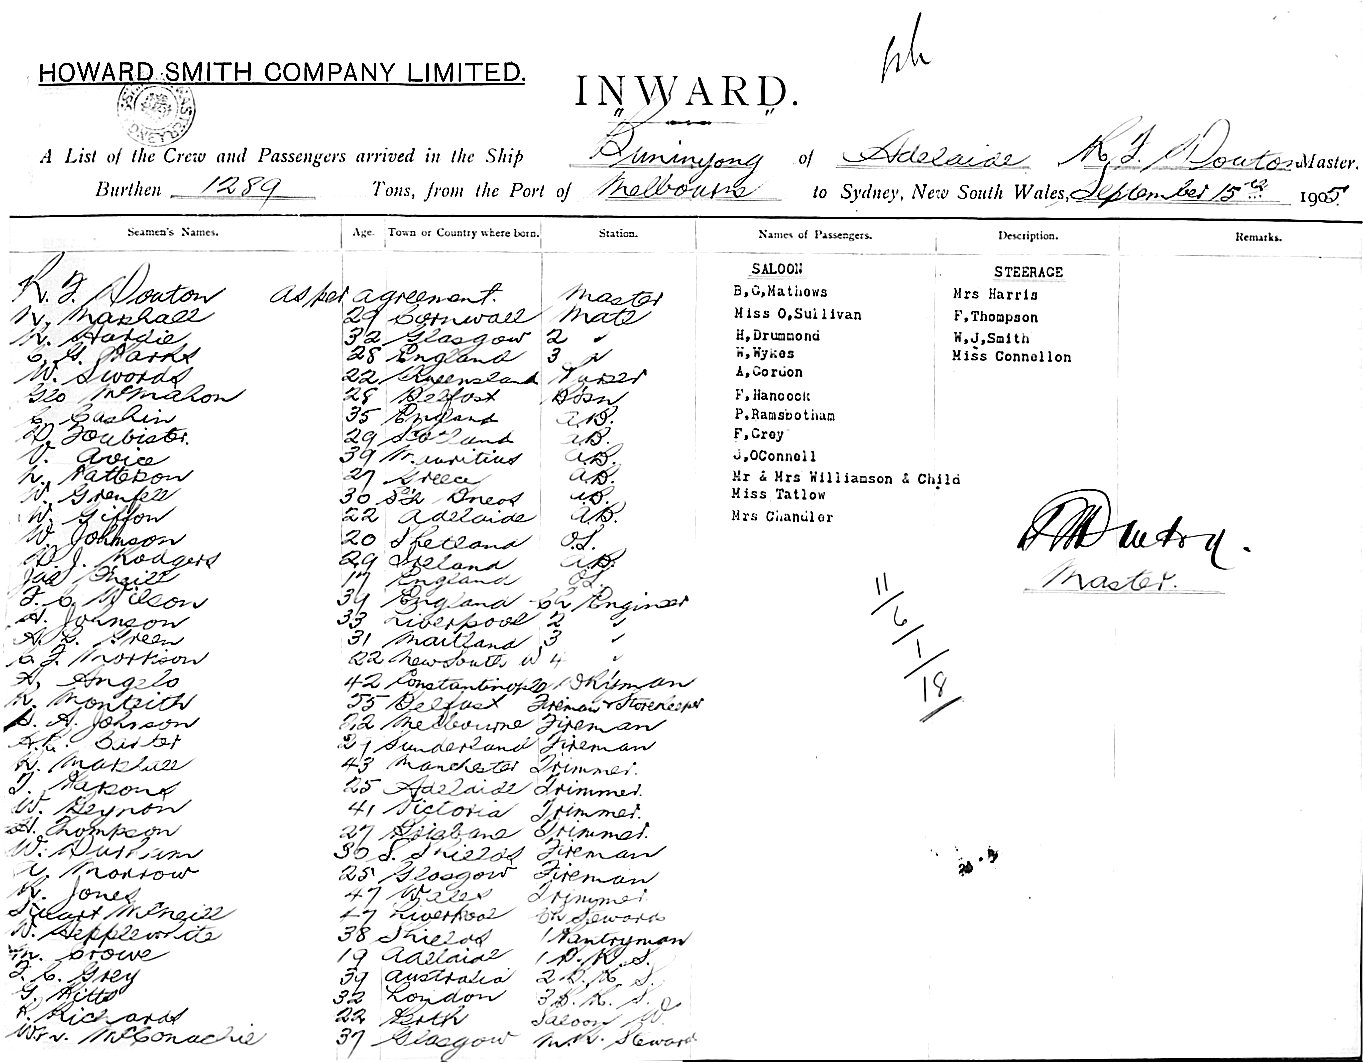 HOWARD SMITH COMPANY LIMITED.
INWARD.
A List of the Crew and Passengers arrived in the Ship "Buninyong" of Adelaide Master.
Burthen 1289 Tons, from the Port of Melbourne to Sydney, New South Wales, September 15th 1905.
Seamen's Names. Age. Town or Country where born. Station. Names of Passengers. Description. Remarks.
SALOON STEERAGE
as per agreement. Master B,G,Mathows Mrs Harris
29 Cornwall Mate Miss O,Sullivan F,Thompson
32 Glasgow 2 " H,Drummond W,J,Smith
C. G. Parks 28 England 3 " W,Wykes Miss Connellon
W. Swords 22 Queensland Purser A,Gordon
Geo McMahon 28 Belfast Bosn F,Hancock
C. Cashin 35 England A.B. P,Ramsbotham
Foubister. 29 Scotland A.B. F,Grey
V. Avice 39 Mauritius A.B. J,OConnell
Patterson 27 Greece A.B. Mr & Mrs Williamson & Child
W. Grenfell 30 A.B. Miss Tatlow
W. Giffon 22 Adelaide A.B. Mrs Chandler
W. Johnson 20 Shetland O.S.
Rodgers 29 Ireland A.B.
17 England O.S. Master.
F. C. Wilson 39 England Ch Engineer
A. Johnson 33 Liverpool 2 "
A. G. Green 31 Maitland 3 "
Morrison 22 New South W 4 "
A. Angelo 42 Constantinople
Monteith 55 Belfast Fireman & Storekeeper
A. Johnson 22 Melbourne Fireman
27 Sunderland Fireman
43 Manchester Trimmer.
T. Parsons 25 Adelaide Trimmer.
W. Beynon 41 Victoria Trimmer.
A. Thompson 27 Brisbane Trimmer.
W. Durham 30 S. Shields Fireman
Morrow 25 Glasgow Fireman
Jones 47 Wales Trimmer
Stuart McNeill 47 Liverpool Ch Steward
W. Hepplewhite 38 Shields 1 Pantryman
M. Crowe 19 Adelaide
F. C. Grey 39 Australia
G. Pitts 32 London
Richards 22 Perth Saloon W.
Wm. McConachie 37 Glasgow Steward
11/6/1/18